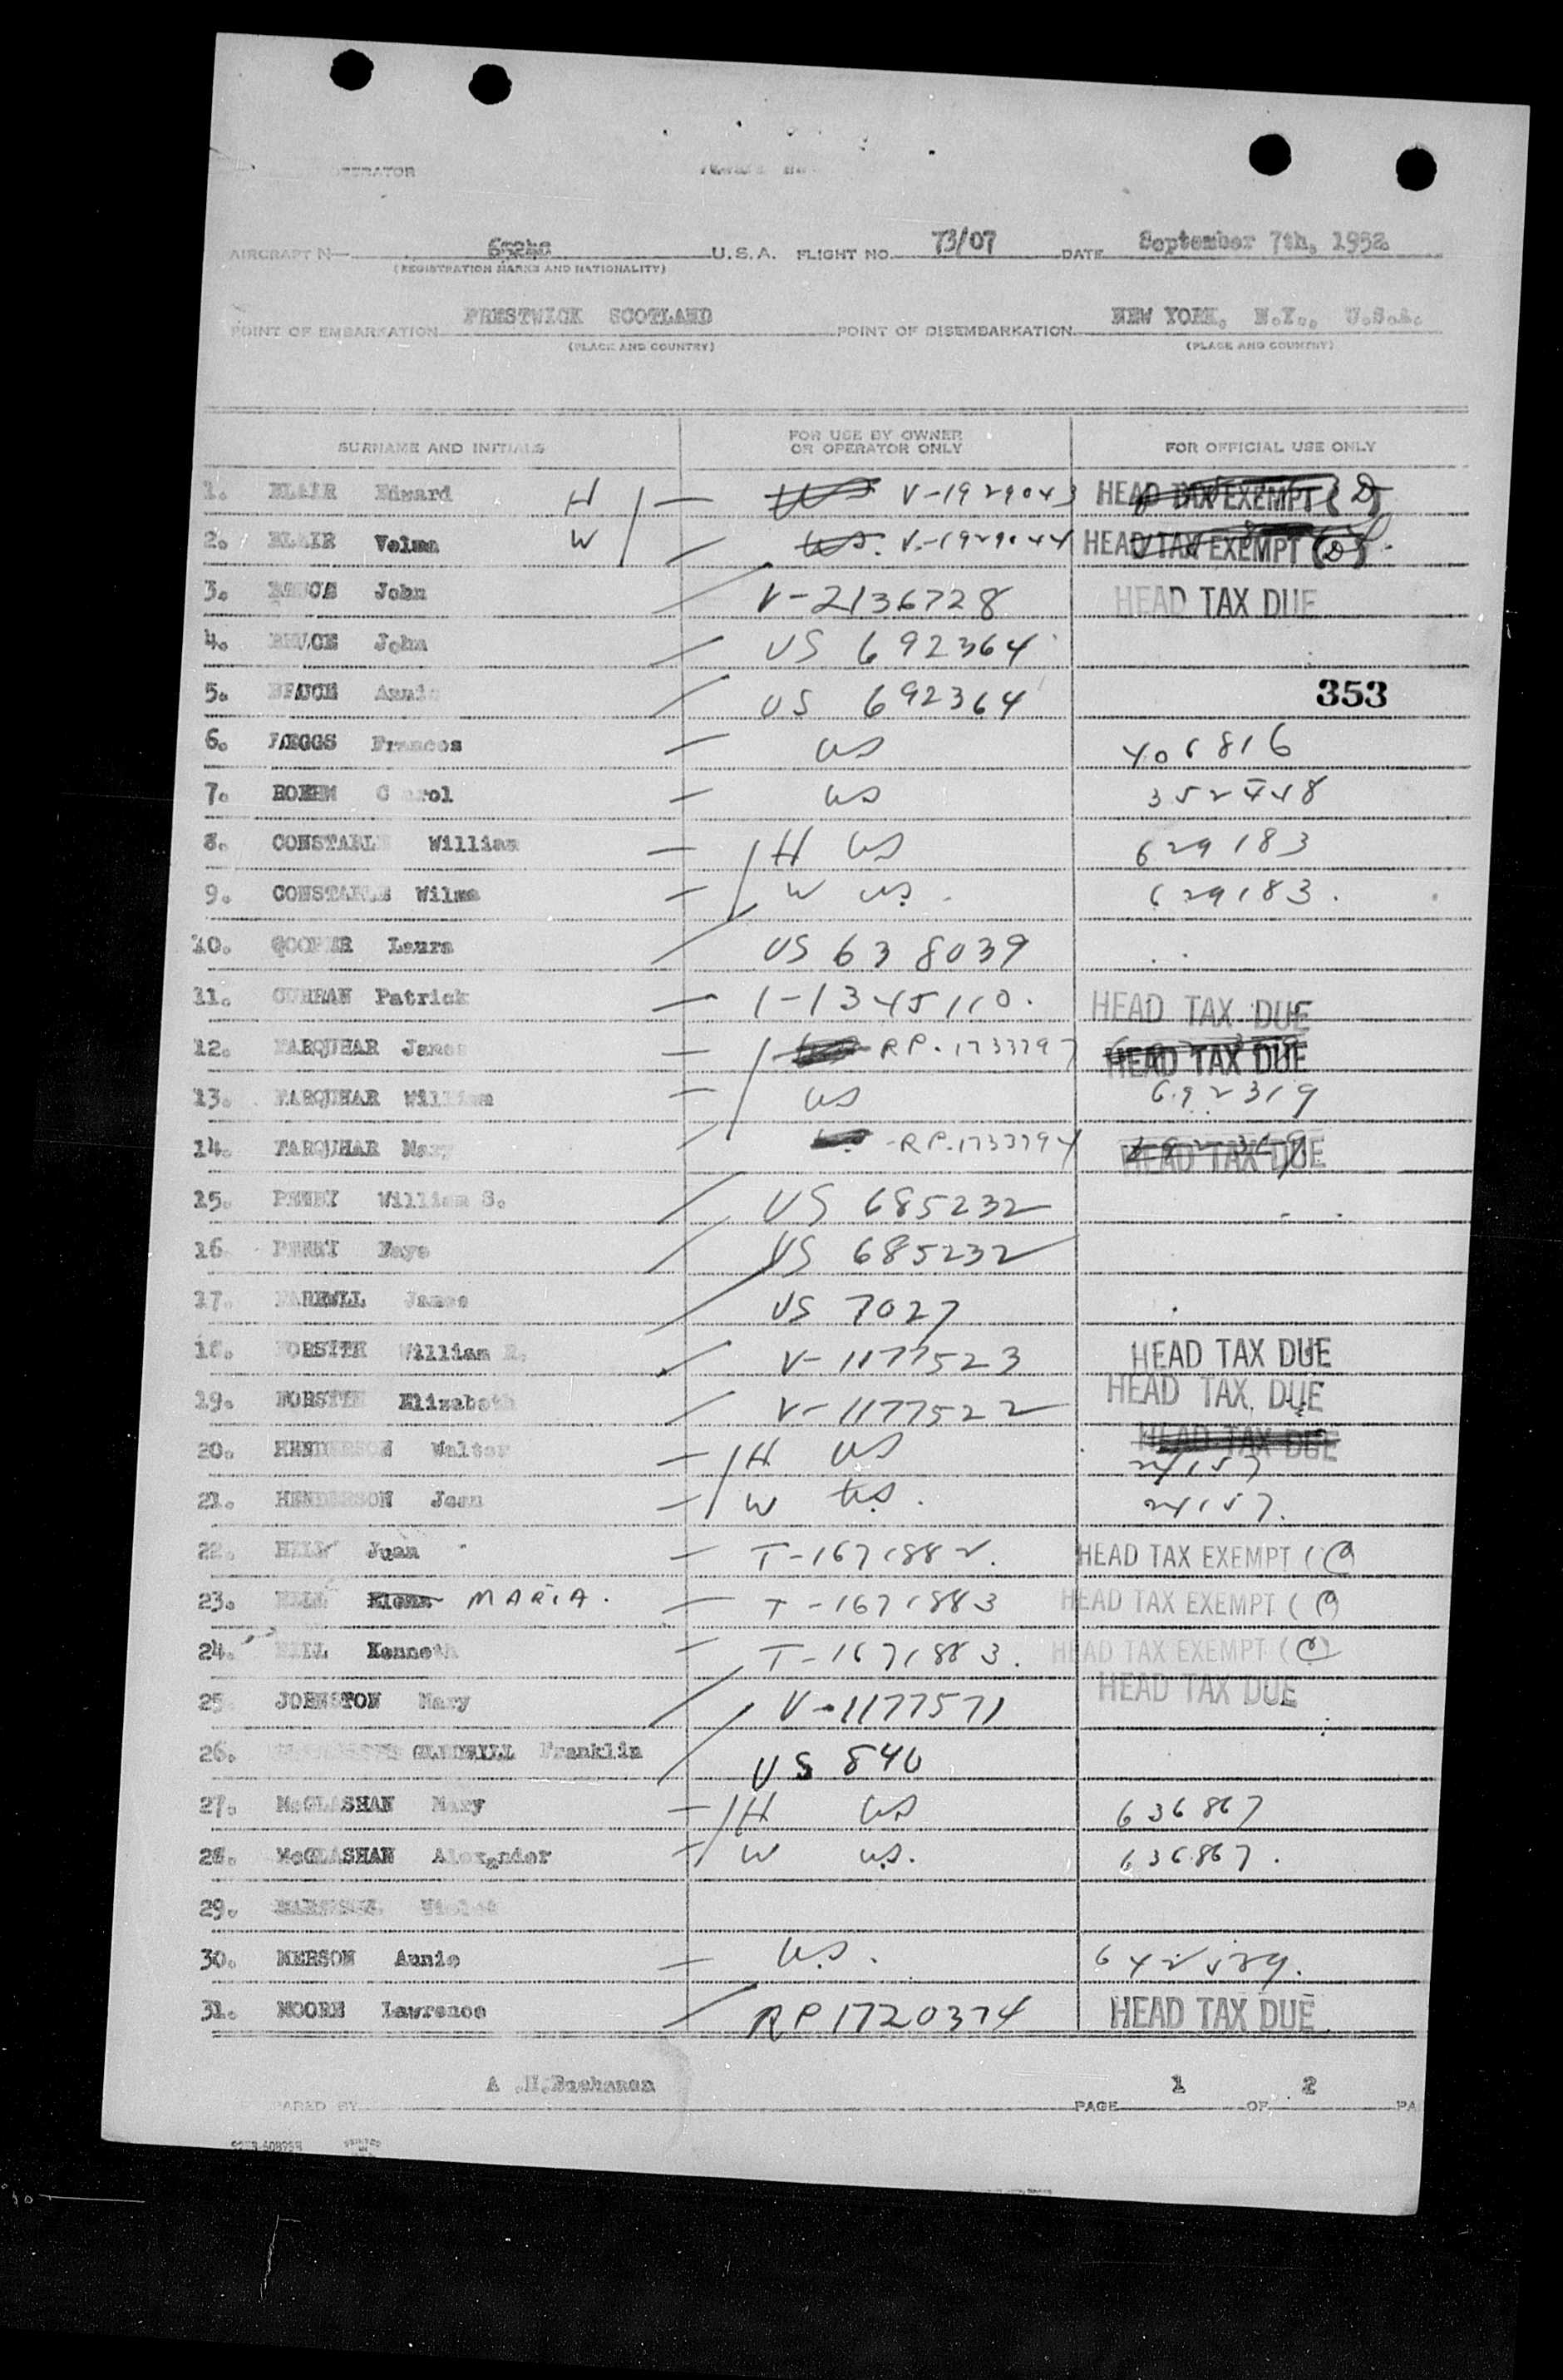 OPERATOR
AIRCRAFT N— U.S.A. FLIGHT NO. 73/07 DATE September 7th, 1952
(REGISTRATION MARKS AND NATIONALITY)
POINT OF EMBARKATION PRESTWICK SCOTLAND POINT OF DISEMBARKATION NEW YORK, N.Y., U.S.A.
(PLACE AND COUNTRY) (PLACE AND COUNTRY)
SURNAME AND INITIALS FOR USE BY OWNER OR OPERATOR ONLY FOR OFFICIAL USE ONLY
1. BLAIR Edward H V-1929043 HEAD TAX EXEMPT (D)
2. BLAIR Velma W V-1929044 HEAD TAX EXEMPT (D)
3. BRUCE John V-2136728 HEAD TAX DUE
4. BRUCE John US 692364
5. Annie US 692364 353
6. Frances US 406816
7. BOEHM Carol US 352448
8. CONSTABLE William H US 629183
9. CONSTABLE Wilma W US. 629183.
10. COOPER Laura US 638039
11. CURRAN Patrick 1-1345110. HEAD TAX DUE
12. FARQUHAR James RP. 1733797 HEAD TAX DUE
13. FARQUHAR William US 692319
14. FARQUHAR Mary RP. 1733794 HEAD TAX DUE
15. William S. US 685232
16 Faye US 685232
17. James US 7027
18. FORSYTH William R. V-1177523 HEAD TAX DUE
19. FORSYTH Elizabeth V-1177522 HEAD TAX DUE
20. HENDERSON Walter H US HEAD TAX DUE 24157
21. HENDERSON Jean W U.S. 24157.
22. HILL Juan T-1671882. HEAD TAX EXEMPT (C)
23. HILL Elena MARIA. T-1671883 HEAD TAX EXEMPT (C)
24. HILL Kenneth T-1671883. HEAD TAX EXEMPT (C)
25 JOHNSTON Mary V-1177571 HEAD TAX DUE
26. GLEDHILL Franklin US 840
27. McGLASHAN Mary H US 636867
28. McGLASHAN Alexander W U.S. 636867.
29.
30. MERSON Annie U.S. 642529.
31. MOORE Lawrence RP 1720374 HEAD TAX DUE
A .H.Buchanan
PARED BY PAGE 1 OF 2 PA